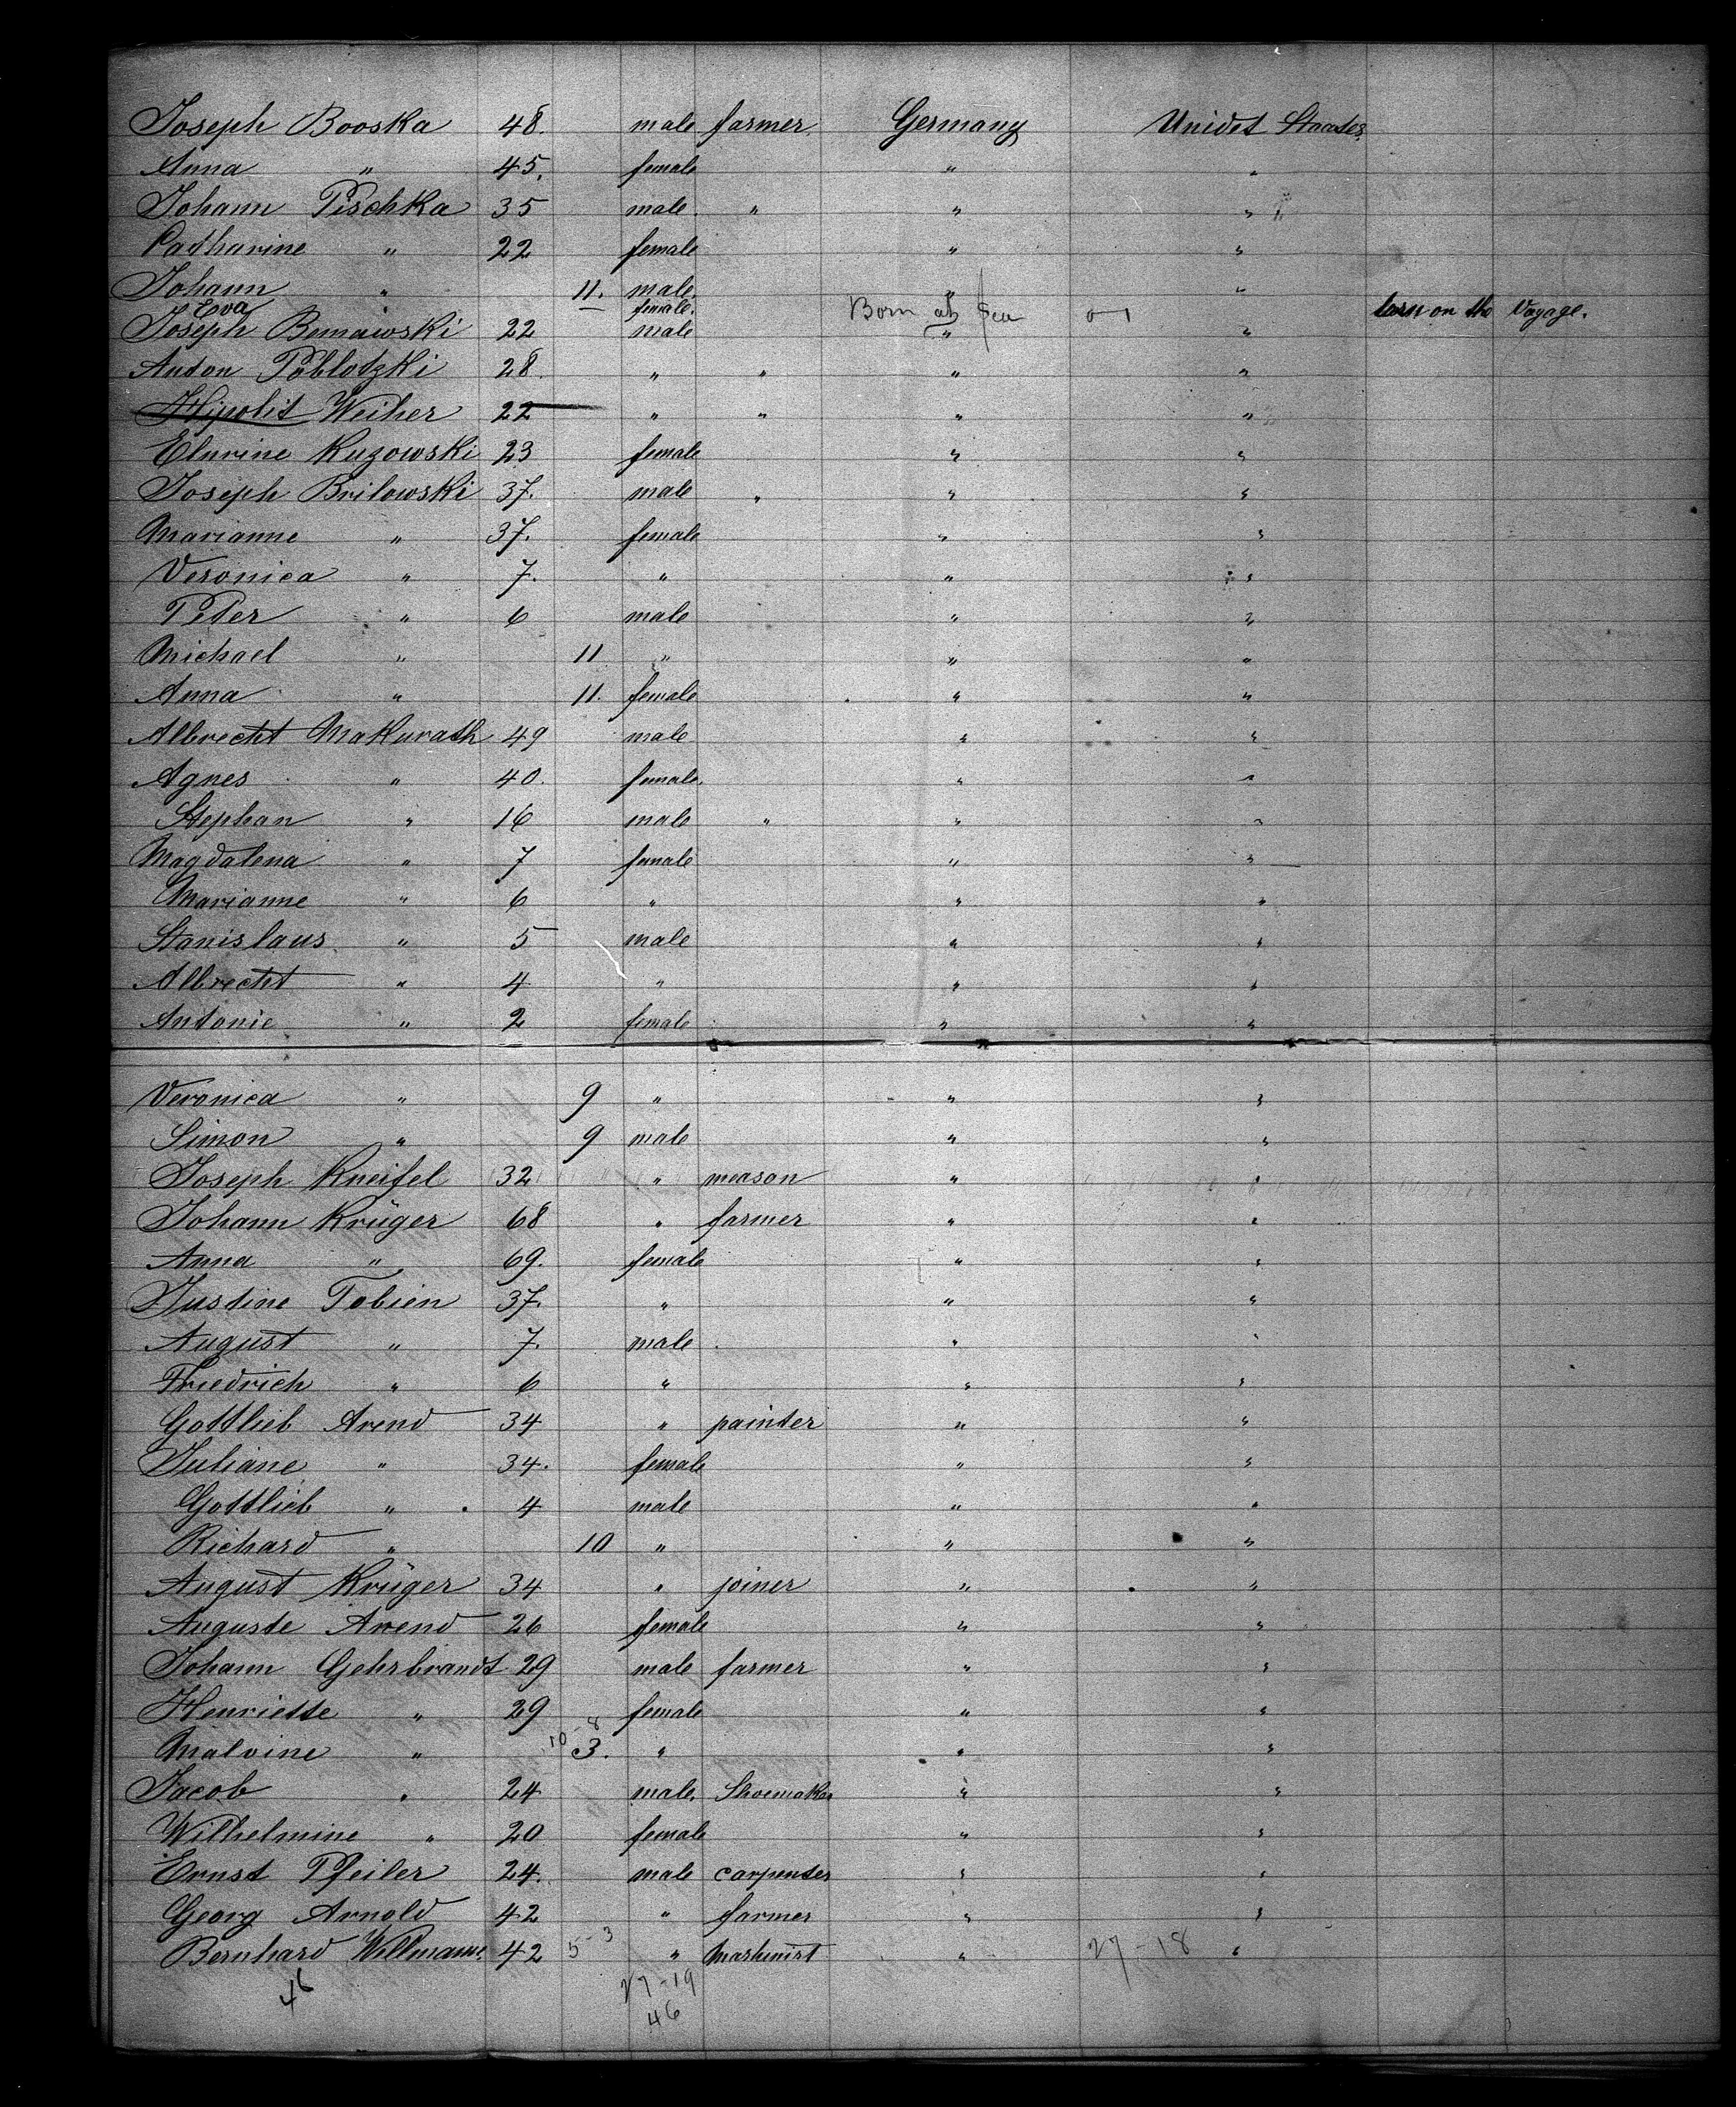 Joseph Booska 48. male farmer Germany Unidet Staates
Anna " 45. female " "
Johann Pischka 35 male " " "
Catharine " 22 female " "
Johann " 11. male " "
Eva — female. Born at Sea 0-1 born on the Voyage.
Joseph Bemawski 22 male " "
Anton Poblotzki 28. " " " "
Hipolit Weiher 22 " " " "
Elurine Kuzowski 23 female " "
Joseph Brilowski 37. male " " "
Marianne " 37. female " "
Veronica " 7. " " "
Peter " 6 male " "
Michael " 11 " " "
Anna " 11. female " "
Albrecht Makurath 49 male " "
Agnes " 40. female " "
Stephan " 16 male " " "
Magdalena " 7 female " "
Marianne " 6 " " "
Stanislaus " 5 male " "
Albrecht " 4 " " "
Antonie " 2 female " "
Veronica " 9 " " "
Simon " 9 male " "
Joseph Kneifel 32 " meason " "
Johann Krüger 68 " farmer " "
Anna " 69. female " "
Justine Tobien 37. " " "
August " 7. male " "
Friedrich " 6 " " "
Gottlieb Arend 34 " painter " "
Juliane " 34. female " "
Gottlieb " 4 male " "
Richard " 10 " " "
August Krüger 34 " joiner " "
Auguste Arend 26 female " "
Johann Gehrbrandt 29 male farmer " "
Henriette " 29 female " "
10-8
Malvine " 3. " " "
Jacob " 24 male. Shoemaker " "
Wilhelmine " 20 female " "
Ernst Pfeiler 24. male carpenter " "
Georg Arnold 42 " farmer " "
Bernhard Willmann 42 5-3 " Mashinist " 27-18 "
46 27-19
46